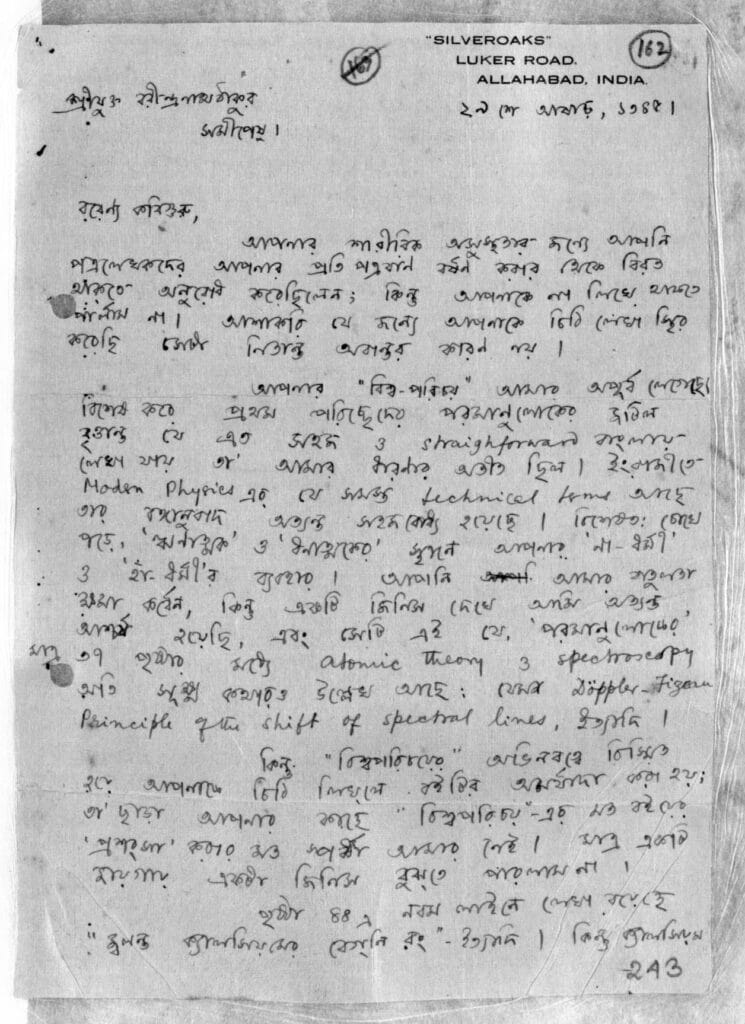 "SILVEROAKS"
LUKER ROAD.
ALLAHABAD, INDIA.
162
২৯ শে আষাঢ়, ১৩৪৫।
শ্রীযুক্ত রবীন্দ্রনাথ ঠাকুর
সমীপেষু।
বরেণ্য কবিগুরু,
আপনার শারীরিক অসুস্থতার জন্যে আপনি
পত্রলেখকদের আপনার প্রতি পত্রবান বর্ষন করার থেকে বিরত
থাকতে অনুরোধ করেছিলেন; কিন্তু আপনাকে না লিখে থাকতে
পার্লাম না। আশাকরি যে জন্যে আপনাকে চিঠি লেখা স্থির
করেছি সেটা নিতান্ত অবান্তর কারণ নয়।
আপনার "বিশ্ব-পরিচয়" আমার অপূর্ব লেগেছে।
বিশেষ করে প্রথম পরিচ্ছেদের পরমানুলোকের জটিল
বৃত্তান্ত যে এত সহজ ও straighforward বাংলায়
লেখা যায় তা' আমার ধারনার অতীত ছিল। ইংরাজীতে
Modern Physics এর যে সমস্ত technical terms আছে
তার বঙ্গানুবাদ অত্যন্ত সহজবোধ্য হয়েছে। বিশেষতঃ চোখে
পড়ে, 'ঋনাত্মক' ও 'ধনাত্মকের' স্থানে আপনার 'না-ধর্মী'
ও 'হাঁ-ধর্মী'র ব্যবহার। আপনি আমার বাতুলতা
ক্ষমা কর্বেন, কিন্তু একটি জিনিস দেখে আমি অত্যন্ত
আশ্চর্য হয়েছি, এবং সেটি এই যে, 'পরমানুলোকের'
মাত্র ৩৭ পৃষ্ঠার মধ্যে atomic theory ও spectroscopy
অতি সূক্ষ্ম কথারও উল্লেখ আছে: যেমন Döppler-Fizeau
Principle of the shift of spectral lines, ইত্যাদি।
কিন্তু "বিশ্বপরিচয়ের" অভিনবত্বে বিস্মিত
হয়ে আপনাকে চিঠি লিখলে বইটির অমর্যাদা করা হয়;
তা' ছাড়া আপনার কাছে "বিশ্বপরিচয়"-এর মত বইয়ের
'প্রশংসা' করার মত স্পর্ধা আমার নেই। মাত্র একটি
যায়গায় একটা জিনিস বুঝতে পারলাম না।
পৃষ্ঠা ৪৪ এ নবম লাইনে লেখা রয়েছে
"জ্বলন্ত ক্যালসিয়মের বেগ্‌নি রং"-ইত্যাদি। কিন্তু ক্যালসিয়ম
243